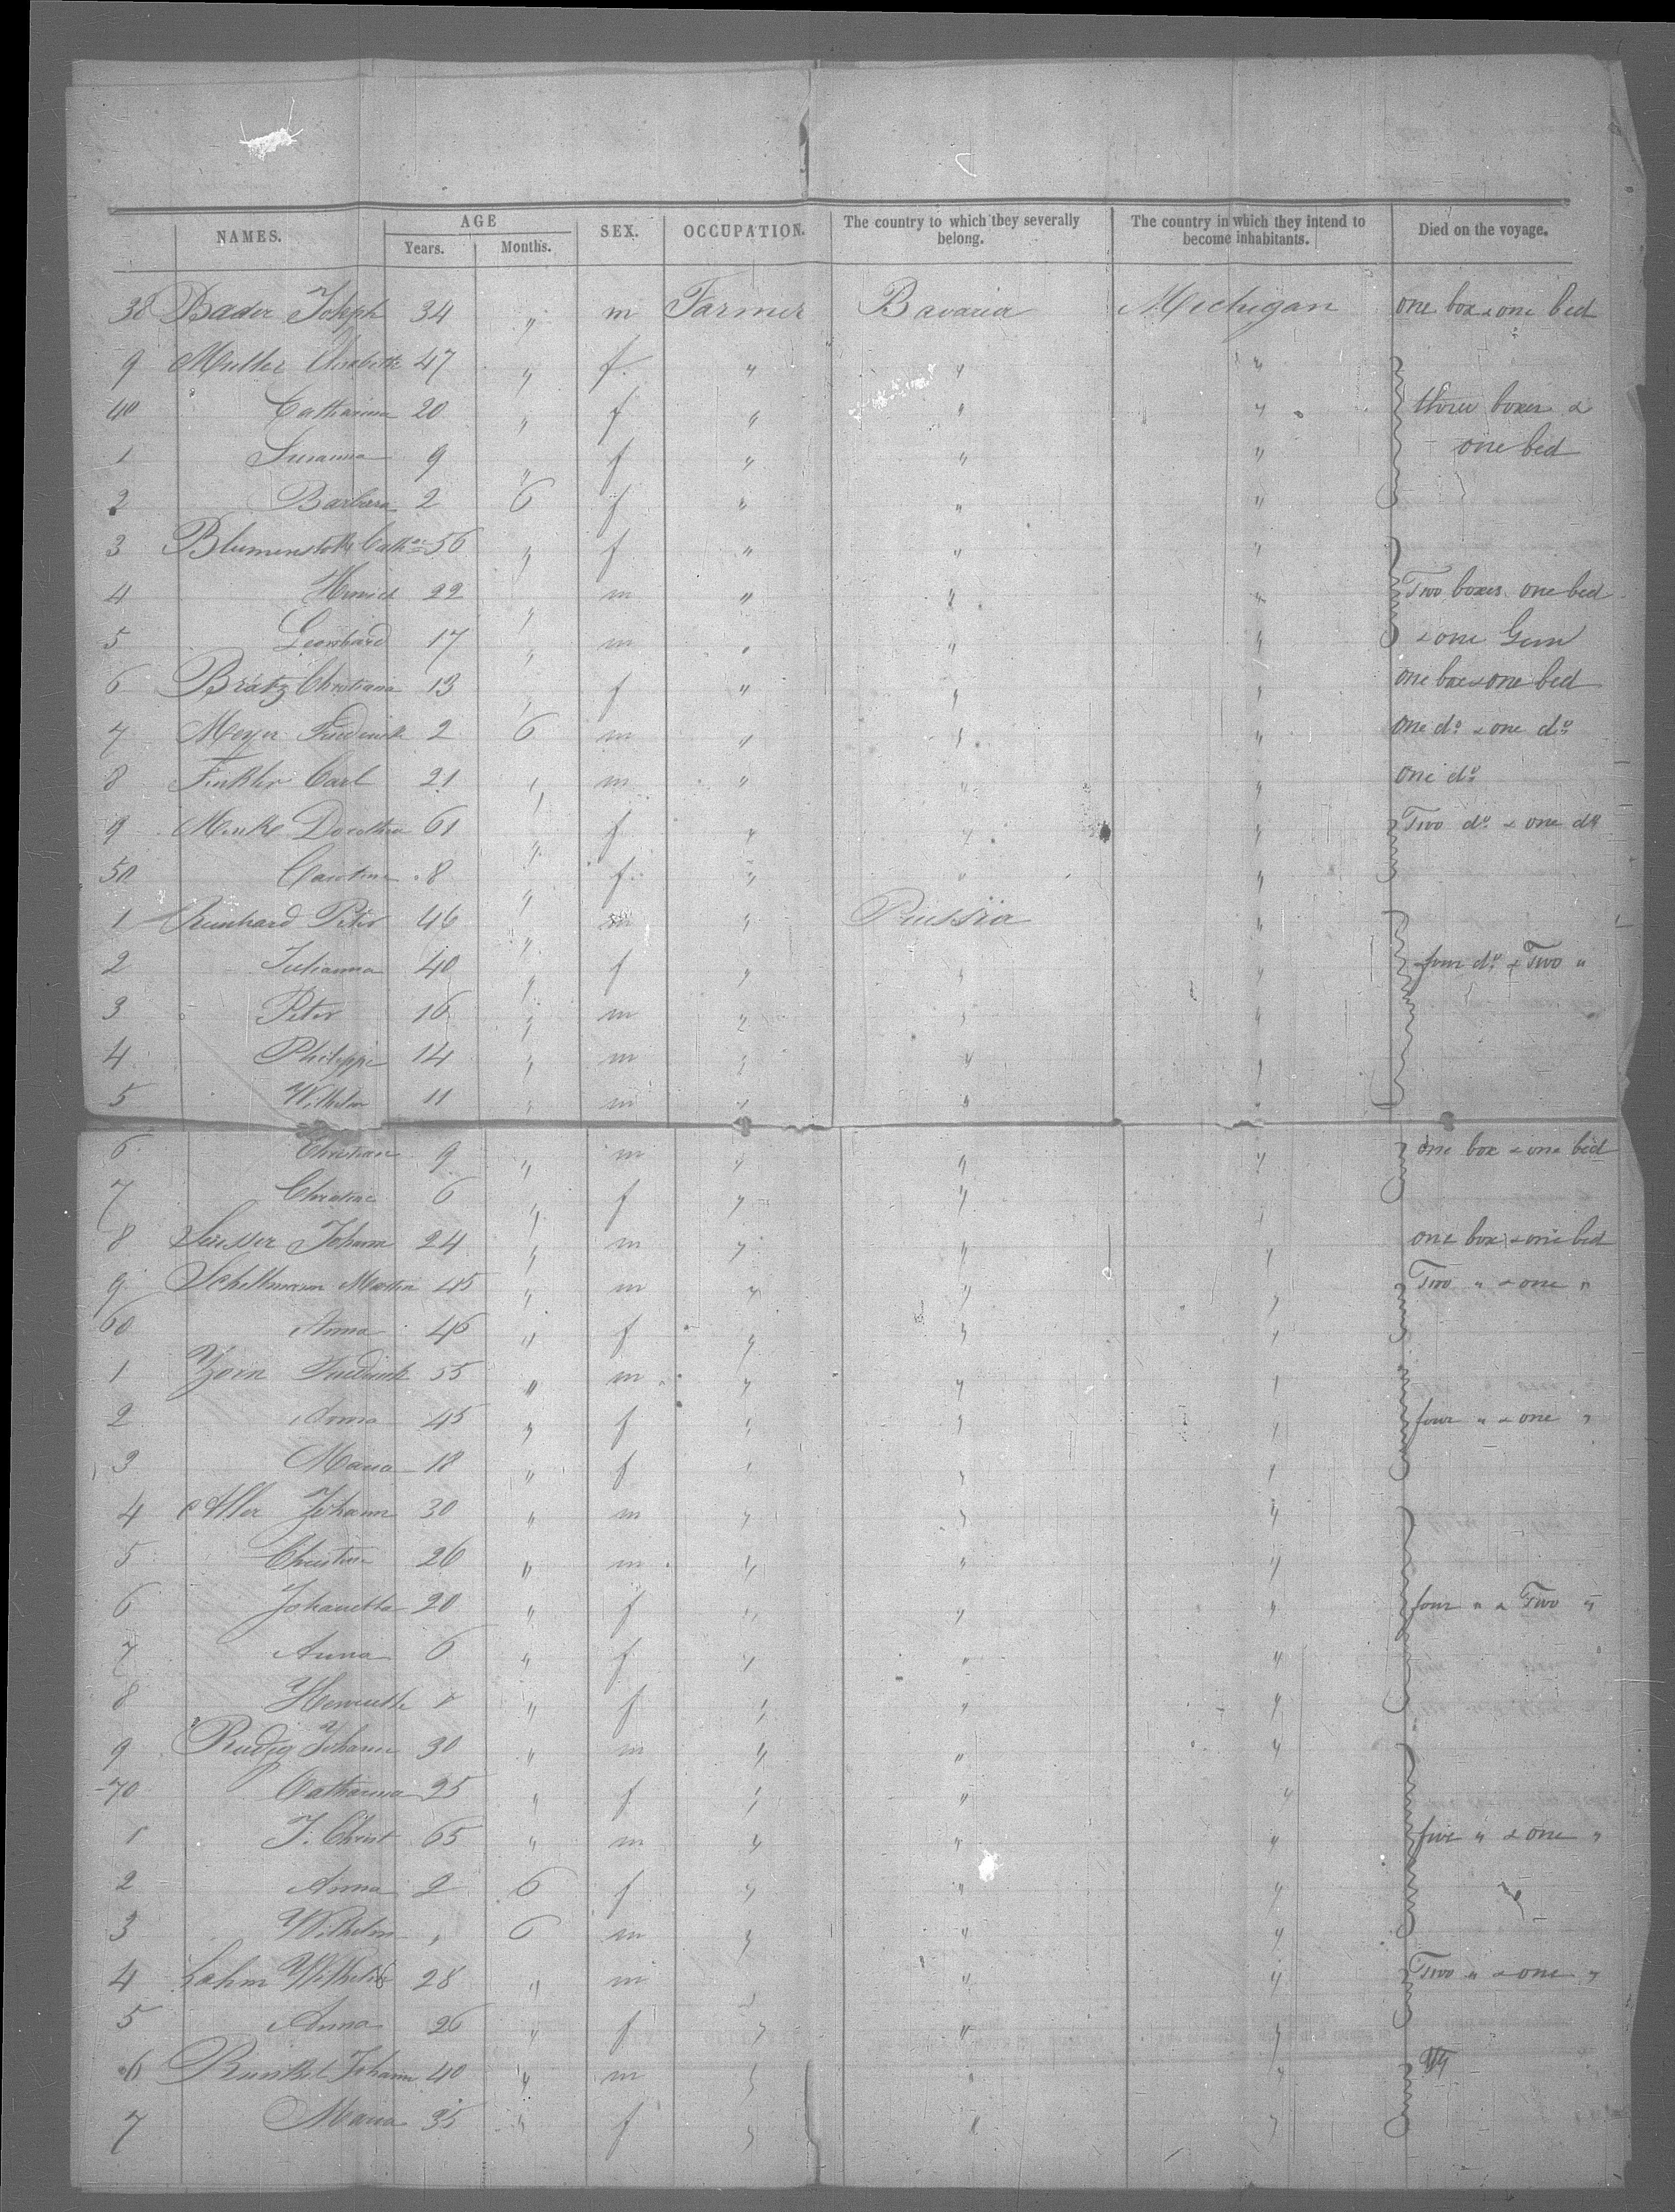 NAMES. AGE Years. Months. SEX. OCCUPATION. The country to which they severally belong. The country in which they intend to become inhabitants. Died on the voyage.
38 Bader Joseph 34 " m Farmer Bavaria Michigan one box & one bed
9 Muller Elisabeth 47 " f. " " "
40 Catharina 20 " f " " " three boxes &
1 Susanna 9 " f " " " one bed
2 Barbara 2 6 f " " "
3 Blumenstok Cath 56 " f " " "
4 22 " m " " " Two boxes one bed
5 Leonhard 17 " m " " " & one Gun
6 Bratz Christiana 13 " f " " " one box & one bed
7 Meyer Friedrick 2 6 m " " " one do & one do
8 Finkler Carl 21 " m " " " one do
9 Dorothea 61 " f " " " Two do & one do
50 8 " f " " "
1 Peter 46 " m " Prussia "
2 Julianna 40 " f " " " four do & Two "
3 Peter 16 " m " " "
4 Philippe 14 " m " " "
5 Wilhelm 11 " m " " "
6 Christian 9 " m " " " one box & one bed
7 Christine 6 " f " " "
8 Johann 24 " m " " " one box & one bed
9 45 " m " " " Two " & one "
60 Anna 46 " f " " "
1 Zorn Friedrick 55 " m " " "
2 Anna 45 " f " " " four " & one "
3 Maria 18 " f " " "
4 Johann 30 " m " " "
5 26 " m " " "
6 Johanetta 20 " f " " " four " & Two "
7 Anna 6 " f " " "
8 Henriette " f " " "
9 Rudig Johann 30 " m " " "
70 Catharina 25 " f " " "
1 J. Christ 65 " m " " " five " & one "
2 Anna 2 6 f " " "
3 Wilhelm " 6 m " " "
4 Lahm Wilhelm 28 " m " " " Two " & one "
5 Anna 26 " f " " "
6 Runkel Johann 40 " m " " "
7 Maria 35 " f " " "